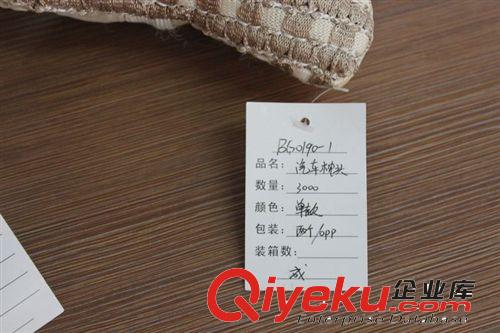 BG0190-1
品名：汽车枕头
数量：3000
颜色：单款
包装：两个/opp
装箱数：
成
Qiyeku.com 企业库
Enterprise Database